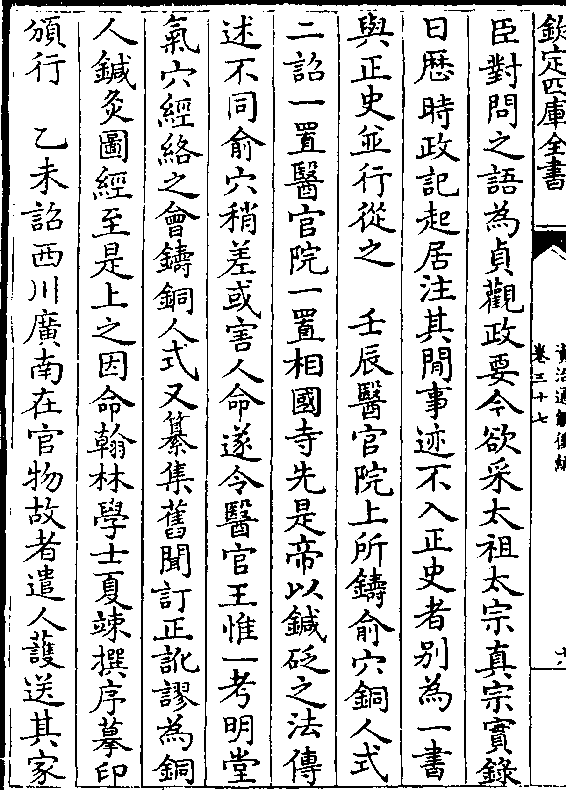 欽定四庫全書
資治通鑑後編
卷三十七
十八
臣對問之語為貞觀政要今欲采太祖太宗真宗實錄
日歷時政記起居注其間事迹不入正史者別為一書
與正史並行從之　壬辰醫官院上所鑄俞穴銅人式
二詔一置醫官院一置相國寺先是帝以鍼砭之法傳
述不同俞穴稍差或害人命遂令醫官王惟一考明堂
氣穴經絡之會鑄銅人式又纂集舊聞訂正訛謬為銅
人鍼灸圖經至是上之因命翰林學士夏竦撰序摹印
頒行　乙未詔西川廣南在官物故者遣人護送其家